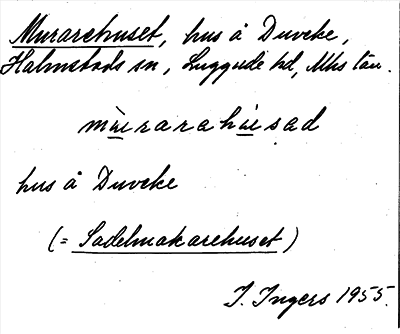 Murarehuset, hus å Duveke,
Halmstads sn, Luggude hd, Mhs län.
mùrarahùsad
hus å Duveke
(= Sadelmakarehuset)
I. Ingers 1955.